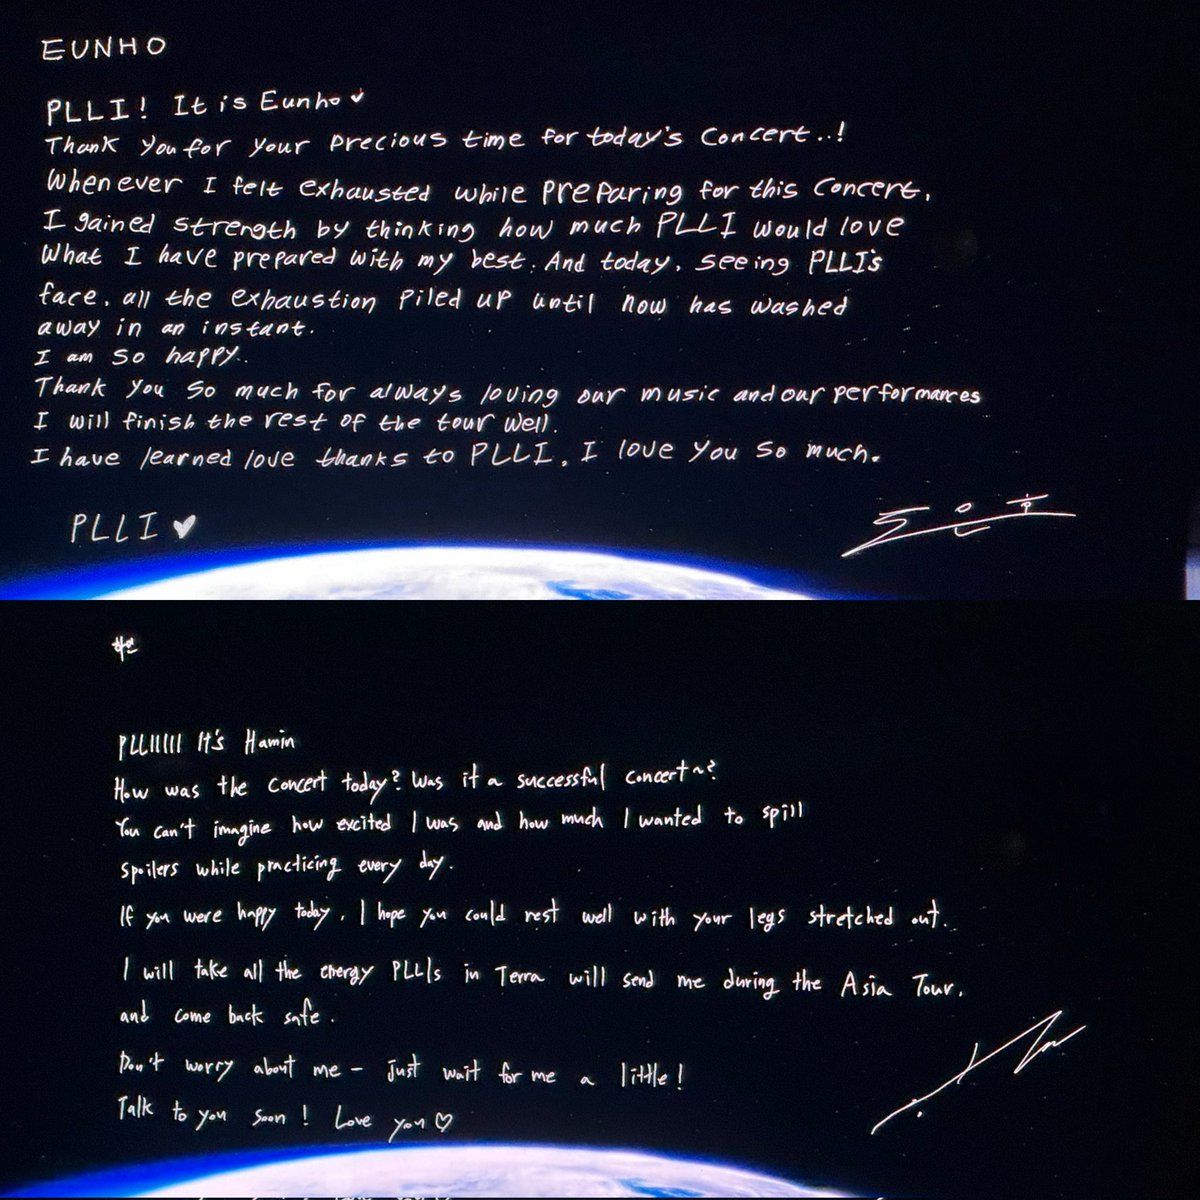 EUNHO
PLLI! It is Eunho♥
Thank you for your precious time for today's concert..!
Whenever I felt exhausted while preparing for this concert,
I gained strength by thinking how much PLLI would love
what I have prepared with my best. And today, seeing PLLI's
face, all the exhaustion piled up until now has washed
away in an instant.
I am so happy..
Thank you so much for always loving our music and our performances
I will finish the rest of the tour well.
I have learned love thanks to PLLI. I love you so much.
PLLI ♥
PLLIIIII It's Hamin
How was the concert today? Was it a successful concert~?
You can't imagine how excited I was and how much I wanted to spill
spoilers while practicing every day.
If you were happy today, I hope you could rest well with your legs stretched out..
I will take all the energy PLLIs in Terra will send me during the Asia Tour,
and come back safe.
Don't worry about me - just wait for me a little!
Talk to you soon! Love you♡